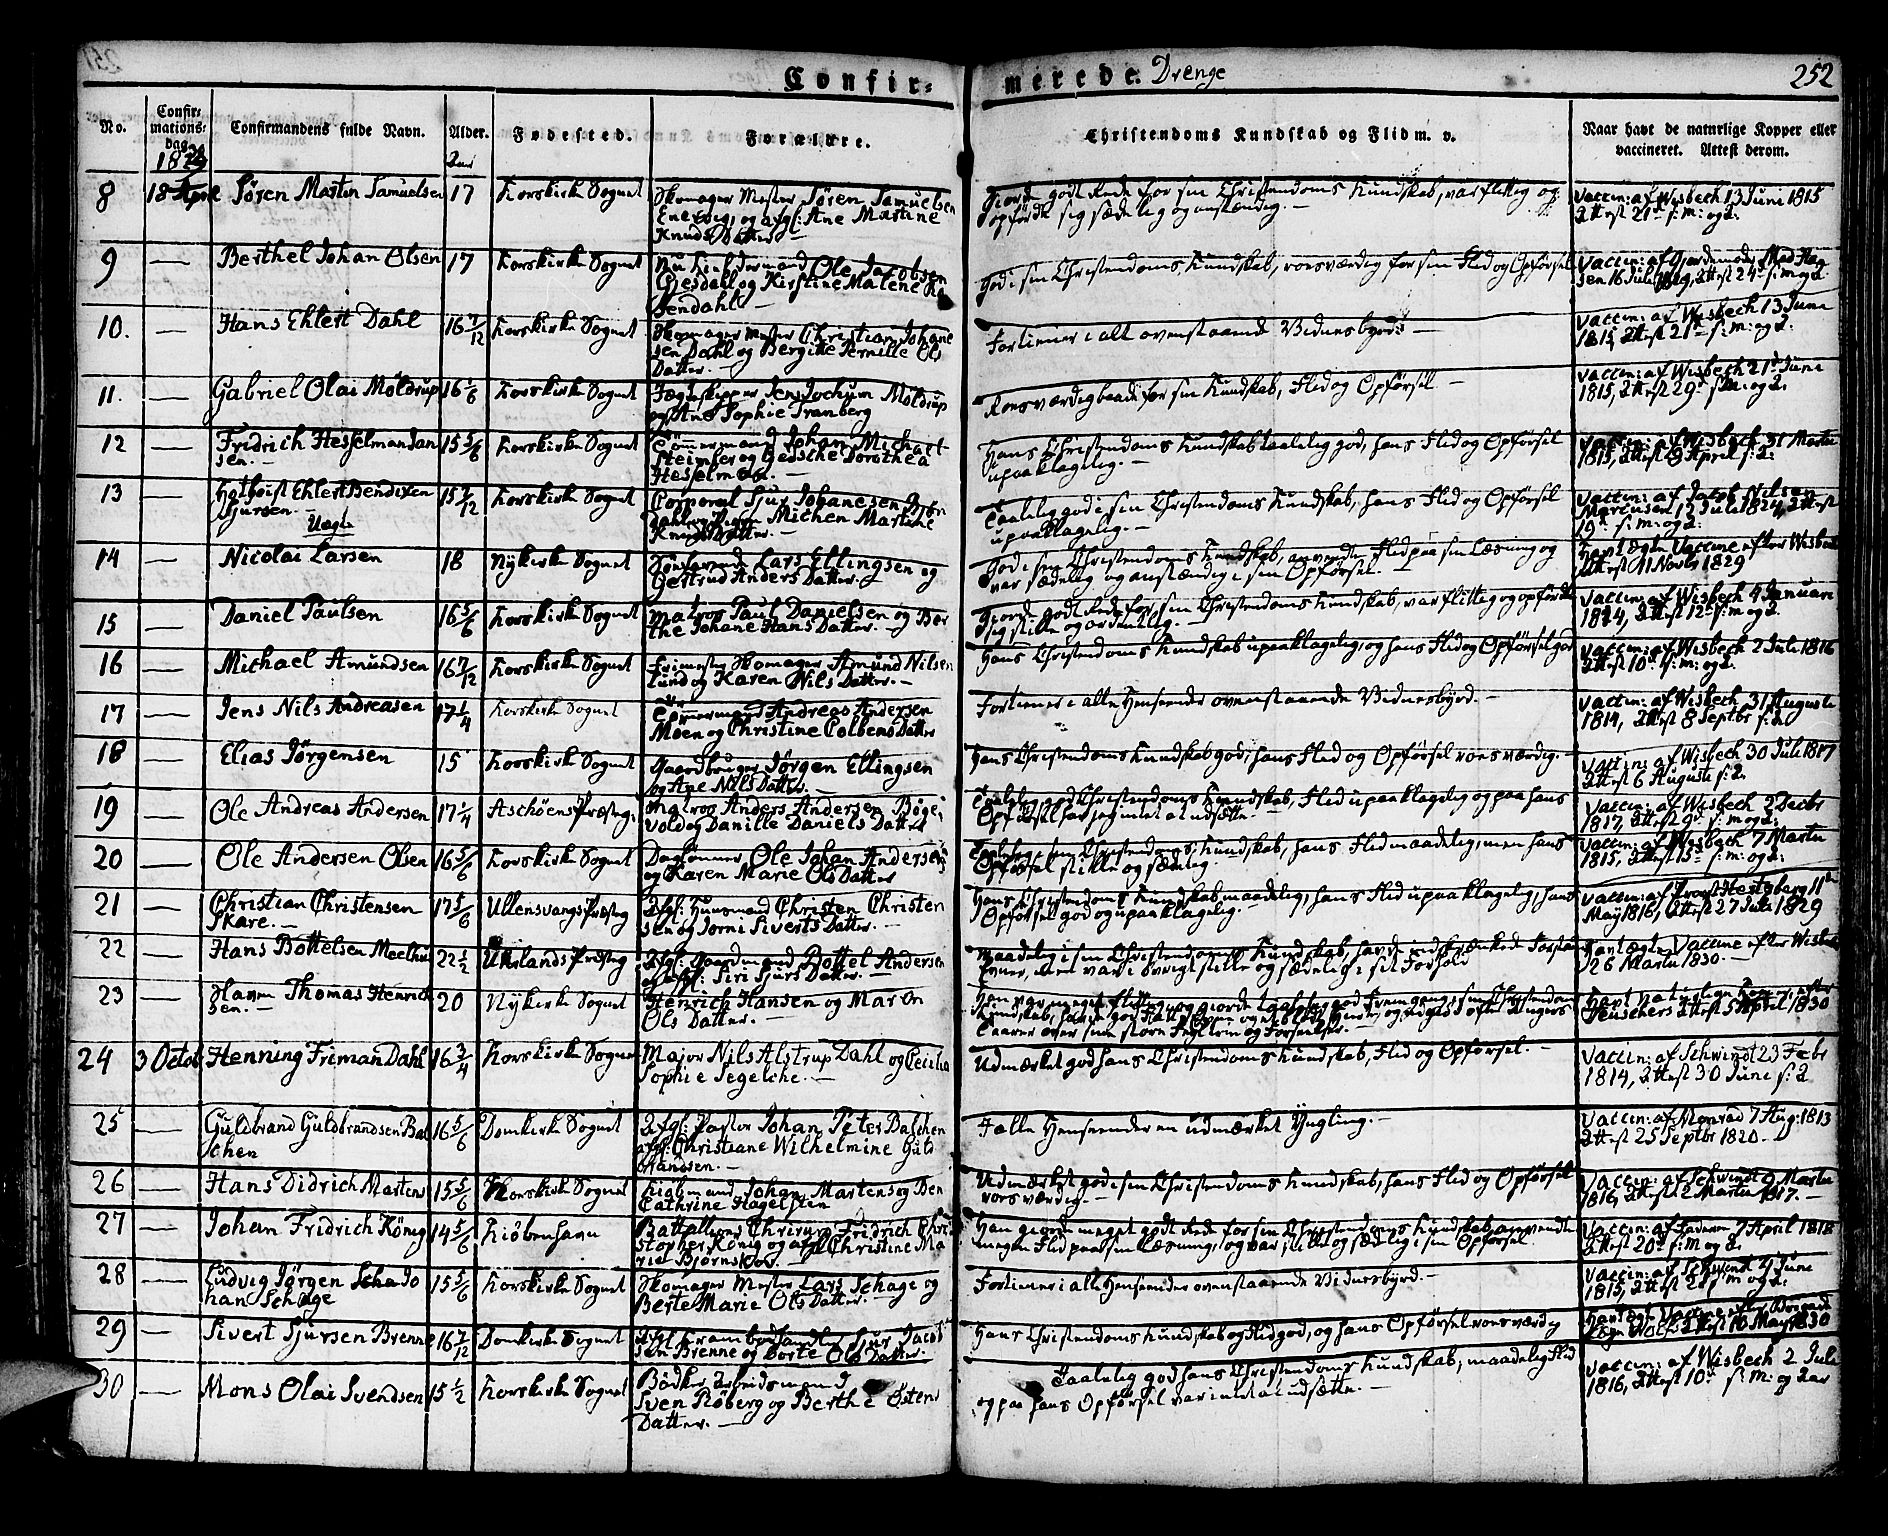 Confir- merede. Drenge 252
No. Confir-mations-dag. Confirmandens fulde Navn. Alder. Fødested. Forældre. Christendoms Kundskab og Flid m. v. Naar havt de naturlige Kopper eller vaccineret. Attest derom.
1830
8 18 April Søren Martin Samuelsen 17 Korskirke Sognet Skomager Mester Søren Samuelsen
og afgl: Ane Martine
Knuds Datter.—
Gjorde godt Rede for sin Christendoms Kundskab, var flittig og
opførde sig sædelig og anstændig.—
Vaccin: af Wisbech 13 Juni 1815
Attest 21de s: m: og a:
9 — Berthel Johan Olsen 17 Korskirke Sognet Ole Jacobsen
Giesdahl og Kirstine Malene
Sendahl—
God i sin Christendoms Kundskab, roesværdig for sin Flid og Opførsel
Vaccin: af Gjordemoder Mad Hag
sen 16 Juli 1819, Attest 24de s: m: og a:
10. — Hans Ehlert Dahl 16 7/12 Korskirke Sognet Skomager Mester Christian Johane
sen Dahl og Bergitte Pernille Ols
Datter.—
Fortiener i alt ovenstaaende Vidnesbyrd:—
Vaccin: af Wisbech 13 Juni
1815, Attest 21de s: m: og a:
11. — Gabriel Olai Möldrup 16 1/6 Korskirke Sognet Jægtskipper Jens Jochum Möldrup
og Ane Sophie Tranberg
Roesværdig baade for sin Kundskab, Flid og Opførsel —
Vaccin: af Wisbech 21de Juni
1815, Attest 29de s: m: og a:
12 — Fridrich Hesselman Jan
sen.— 15 5/6 Korskirke Sognet Tømmermand Johan Michael
Steimler og Gedsche Dorothea
Hesselman.
Hans Christendoms Kundskab taalelig god, hans Flid og Opførsel
upaaklagelig.—
Vaccin: af Wisbech 31 Martii
1815, Attest 8 April s: a:
13 — Ehlert Bendixen
Sjursen.— Uægte 15 7/12 Korskirke Sognet Corporal Sjur Johanesen
Michen Martine
Knuds Datter.—
Taalelig god i sin Christendoms Kundskab, hans Flid og Opførsel
upaaklagelig.—
Vaccin: af Jacob Nilsen
Marcusen 12 Juli 1824, Attest
19de s: m: og a:
14 — Nicolai Larsen 18 Nykirke Sognet Lars Ellingsen og
Gertrud Anders Datter.—
God i sin Christendoms Kundskab, anvendte Flid paa sin Læsning og
var sædelig og anstændig i sin Opførsel.
Havt ægte Vaccine efter Wisbech
Attest 11 Novbr 1829
15 — Daniel Paulsen 16 5/6 Korskirke Sognet Matros Paul Danielsen og Ber
the Johane Hans Datter.—
Gjorde godt Rede for sin Christendoms Kundskab, var flittig og opførde
sig stille og ordentlig.—
Vaccin: af Wisbech 4 Januari
1814, Attest 12te s: m: og a:
16 — Michael Amundsen 16 7/12 Korskirke Sognet Frimester Skomager Amund Nilsen
Lund og Karen Nils Datter.—
Hans Christendoms Kundskab upaaklagelig, og hans Flid og Opførsel god
Vaccin: af Wisbech 2 Juli 1816
Attest 10de s: m: og a:
17 — Jens Nils Andreasen 17 1/4 Korskirke Sognet Tømmermand Andreas Andersen
Moen og Christine Colbens Datter
Fortiener i alle Henseender ovenstaaende Vidnesbyrd.—
Vaccin: af Wisbech 31 Augusti
1814, Attest 8 Septbr s: a:
18 — Elias Jørgensen 15 Korskirke Sognet Gaardbruger Jørgen Ellingsen
og Ane Nils Datter.—
Hans Christendoms Kundskab god, hans Flid og Opførsel roesværdig.—
Vaccin: af Wisbech 30 Juli 1817
Attest 6 Augusti s: a:
19 — Ole Andreas Andersen 17 1/4 Aschøens Præsteg: Matros Anders Andersen Bøge
vold og Danille Daniels Datter
Taalelig god Christendoms Kundskab, Flid upaaklagelig og paa hans
Opførsel har jeg intet at udsætte.
Vaccin: af Wisbech 2 Decbr
1817, Attest 9de s: m: og a:
20 — Ole Andersen Olsen 16 5/6 Korskirke Sognet Daglønner Ole Johan Andersen
og Karen Marie Ols Datter
Taalelig i sin Christendoms Kundskab, hans Flid maadelig, men hans
Opførsel stille og sædelig.
Vaccin: af Wisbech 7 Martii
1815, Attest 15de s: m: og a:
21 — Christian Christensen
Skare.— 17 5/6 Ullensvangs Præsteg Afgl: Huusmand Christen Christen
sen og Jorni Siverts Datter.—
Hans Christendoms Kundskab maadelig, hans Flid upaaklagelig, hans
Opførsel god og upaaklagelig.—
Vaccin: af Provst Hertzberg 11te
May 1816, Attest 27 Juli 1829
22 — Hans Bottelsen Meelhuus 22 1/2 Præsteg Afgl: Gaardmand Bottel Andersen
og afgl: Siri Sjurs Datter.—
Maadelig i sin Christendoms Kundskab, havde indskrænkede Forstands
Evner, men var i øvrigt stille og sædelig i sit Forhold
Havt ægte Vaccine efter Wisbech
26 Martii 1830.—
23 — Thomas Henrich
sen.— 20 Nykirke Sognet Henrich Hansen og Maron
Ols Datter.—
Han var meget flittig og giorde taalelig god Fremgang i sin Christendoms
Kundskab,
Havt naturlige Kopper efter
Attest 5 April 1830
24 3 Octob Henning Friman Dahl 16 3/4 Korskirke Sognet Major Nils Alstrup Dahl og Cecilia
Sophie Segelche.—
Udmærket god hans Christendoms Kundskab, Flid og Opførsel.—
Vaccin: af Schwindt 23 Febr
1814, Attest 30 Juni s: a
25 — Guldbrand Guldbrandsen Bal
schen 16 5/6 Domkirke Sognet Afgl: Pastor Johan Peter Balchen
afgl: Christiane Wilhelmine Guls
brandsen.—
I alle Henseender en udmærket Yngling.—
Vaccin: af Monrad 7 Aug: 1813
Attest 25 Septbr 1820.—
26 — Hans Didrich Martens 15 5/6 Korskirke Sognet Kiøbmand Johan Martens og Ben
Cathrine Hagelsteen
Udmærket god i sin Christendoms Kundskab, hans Flid og Opførsel
roesværdig.—
Vaccin: af Schwindt 9 Martii
1816, Attest 2 Martii 1817.—
27 — Johan Fridrich König 14 5/6 Kiøbenhavn Battallions Chirurg Fridrich Chri
stopher König og afgl: Christine Ma
rie Bjørnskov.—
Han giorde meget godt Rede for sin Christendoms Kundskab, anvendte
megen Flid paa sin Læsning, og var stille og sædelig i sin Opførsel.
Vaccin: af 7 April 1818
Attest 20de s: m og a:
28 — Ludvig Jørgen Scha Jo
han Schage 15 5/6 Korskirke Sognet Skomager Mester Lars Schage og
Berte Marie Ols Datter.—
Fortiener i alle Henseender ovenstaaende Vidnesbyrd.—
Vaccin: af Schwindt Juni
1815, Attest s: m og a:
29 — Sivert Sjursen Brenne 16 7/12 Domkirke Sognet Sjur Jacob
sen Brenne og Dorte Ols Datter.
Hans Christendoms Kundskab og Flid god, og hans Opførsel roesværdig
Havt ægte Vaccine efter
Attest 10 May 1830
30 — Mons Olai Svendsen 15 1/2 Korskirke Sognet Bødker Arbeidsmand
Sven Röberg og Berthe Östens
Datter.—
Taalelig god hans Christendoms Kundskab, maadelig Flid
og paa hans Opførsel var intet at udsætte.—
Vaccin: af Wisbech 2 Juli
1816, Attest 10de s: m: og aar